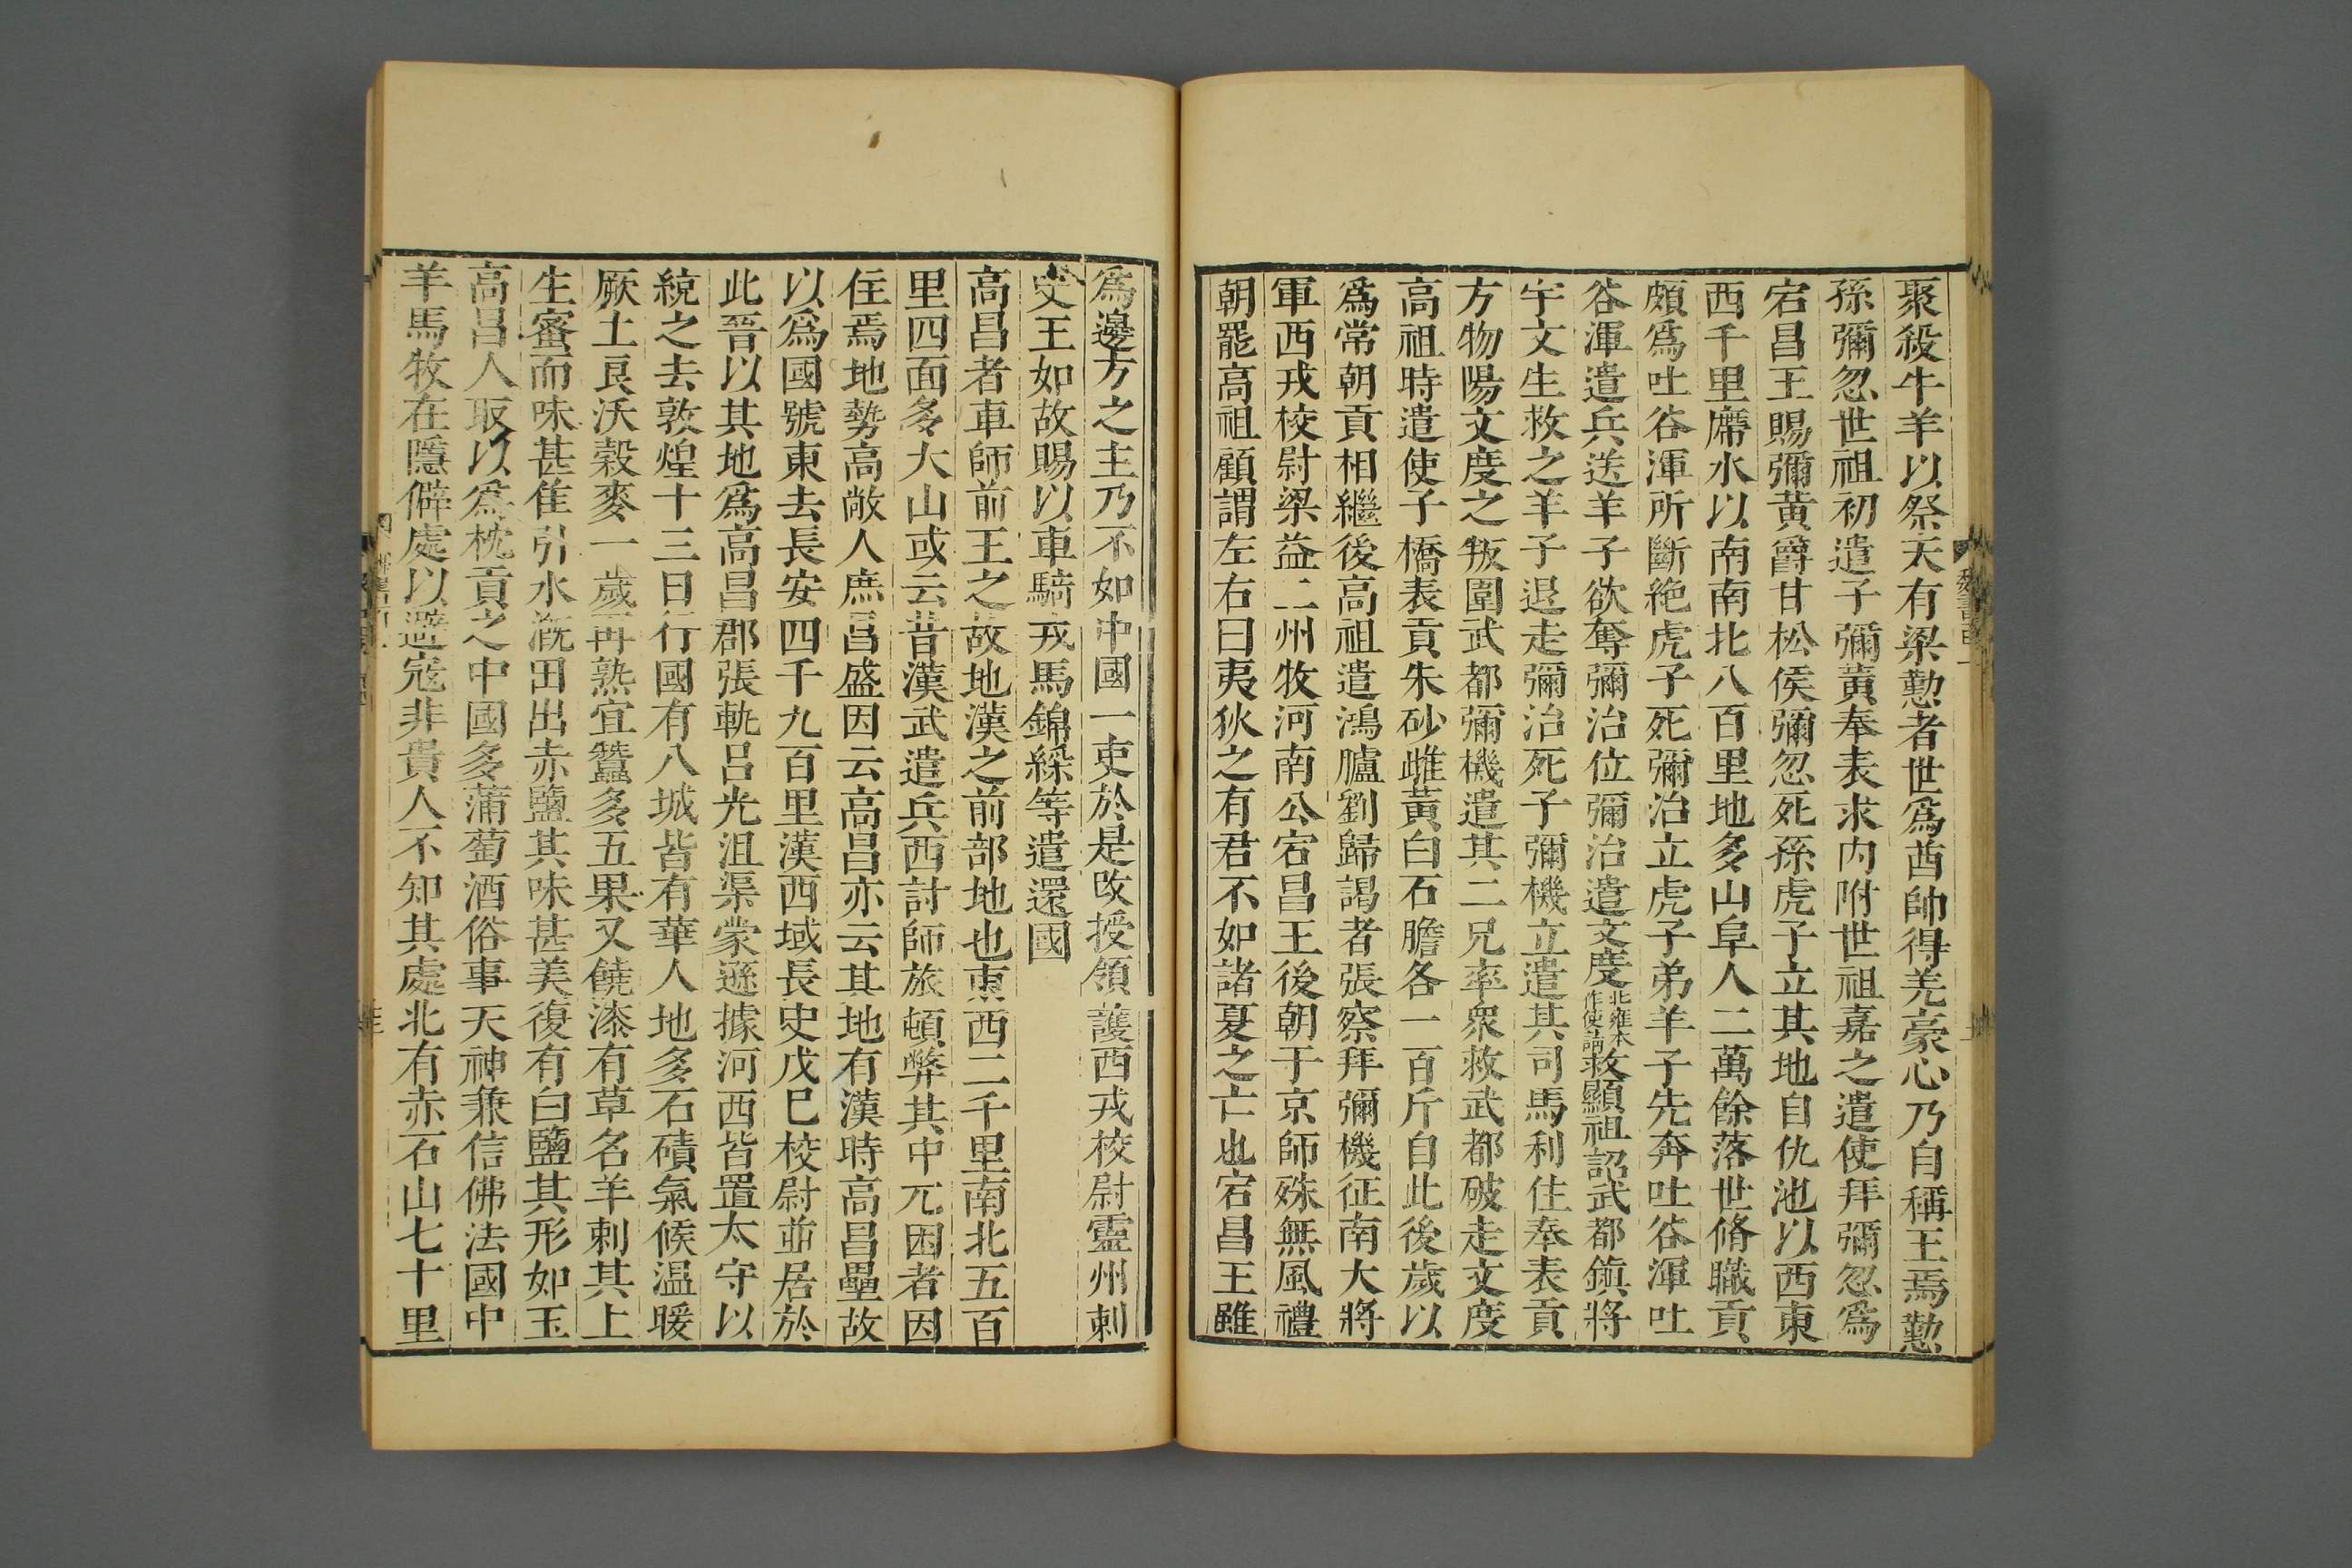 聚殺牛羊以祭天有梁懃者世爲酋帥得羌豪心乃自稱王焉懃
孫彌忽世祖初遣子彌黃奉表求內附世祖嘉之遣使拜彌忽爲
宕昌王賜彌黃爵甘松侯彌忽死孫虎子立其地自仇池以西東
西千里席水以南南北八百里地多山阜人二萬餘落世脩職貢
頗爲吐谷渾所斷絶虎子死彌治立虎子弟羊子先奔吐谷渾吐
谷渾遣兵送羊子欲奪彌治位彌治遣文度北雍本作使請救顯祖詔武都鎭將
宇文生救之羊子退走彌治死子彌機立遣其司馬利住奉表貢
方物陽文度之叛圍武都彌機遣其二兄率衆救武都破走文度
高祖時遣使子橋表貢朱砂雌黃白石膽各一百斤自此後歲以
爲常朝貢相繼後高祖遣鴻臚劉歸謁者張察拜彌機征南大將
軍西戎校尉梁益二州牧河南公宕昌王後朝于京師殊無風禮
朝罷高祖顧謂左右曰夷狄之有君不如諸夏之亡也宕昌王雖
爲邊方之主乃不如中國一吏於是改授領護西戎校尉靈州刺
史王如故賜以車騎戎馬錦綵等遣還國
高昌者車師前王之故地漢之前部地也東西二千里南北五百
里四面多大山或云昔漢武遣兵西討師旅頓弊其中兀困者因
住焉地勢高敞人庶昌盛因云高昌亦云其地有漢時高昌壘故
以爲國號東去長安四千九百里漢西域長史戊巳校尉並居於
此晉以其地爲高昌郡張軌呂光沮渠蒙遜據河西皆置太守以
統之去敦煌十三日行國有八城皆有華人地多石磧氣候温暖
厥土良沃穀麥一歲再熟宜蠶多五果又饒漆有草名羊刺其上
生蜜而味甚佳引水漑田出赤鹽其味甚美復有白鹽其形如玉
高昌人取以爲枕貢之中國多蒲萄酒俗事天神兼信佛法國中
羊馬牧在隱僻處以避寇非貴人不知其處北有赤石山七十里